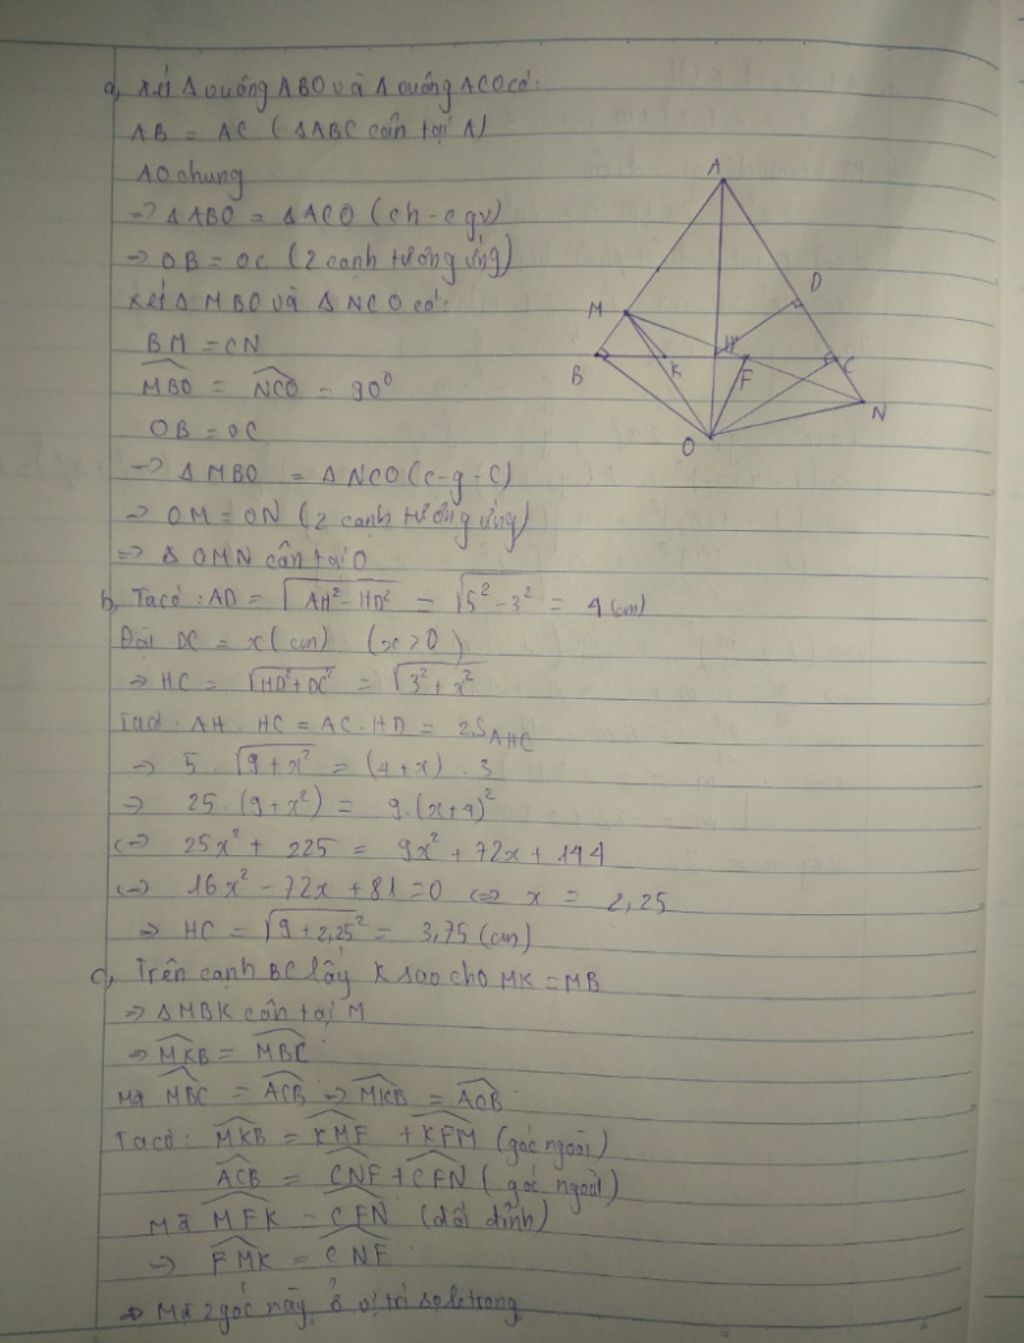 a, Xét Δ vuông ABO và Δ vuông ACO có:
AB = AC ( ΔABC cân tại A)
AO chung
=> ΔABO = ΔACO (ch - cgv)
=> OB = OC (2 cạnh tương ứng)
Xét Δ MBO và Δ NCO có:
BM = CN
\widehat{MBO} = \widehat{NCO} = 90°
OB = OC
=> Δ MBO = Δ NCO (c-g-c)
=> OM = ON (2 cạnh tương ứng)
=> Δ OMN cân tại O
b, Ta có : AD = √(AH² - HD²) = √(5² - 3²) = 4 (cm)
Đặt DC = x (cm) (x > 0)
=> HC = √(HD² + DC²) = √(3² + x²)
Ta có: AH . HC = AC . HD = 2S_{AHC}
=> 5 . √(9 + x²) = (4 + x) . 3
=> 25 . (9 + x²) = 9 . (x + 4)²
<=> 25x² + 225 = 9x² + 72x + 144
<=> 16x² - 72x + 81 = 0 <=> x = 2,25
=> HC = √(9 + 2,25²) = 3,75 (cm)
c, Trên cạnh BC lấy K sao cho MK = MB
=> ΔMBK cân tại M
=> \widehat{MKB} = \widehat{MBC}
Mà \widehat{MBC} = \widehat{ACB} => \widehat{MKB} = \widehat{ACB}
Ta có: \widehat{MKB} = \widehat{KMF} + \widehat{KFM} (góc ngoài)
\widehat{ACB} = \widehat{CNF} + \widehat{CFN} (góc ngoài)
Mà \widehat{MFK} = \widehat{CFN} (đối đỉnh)
=> \widehat{FMK} = \widehat{CNF}
=> Mà 2 góc này ở vị trí so le trong
A
D
M
H
B
K
F
C
N
O